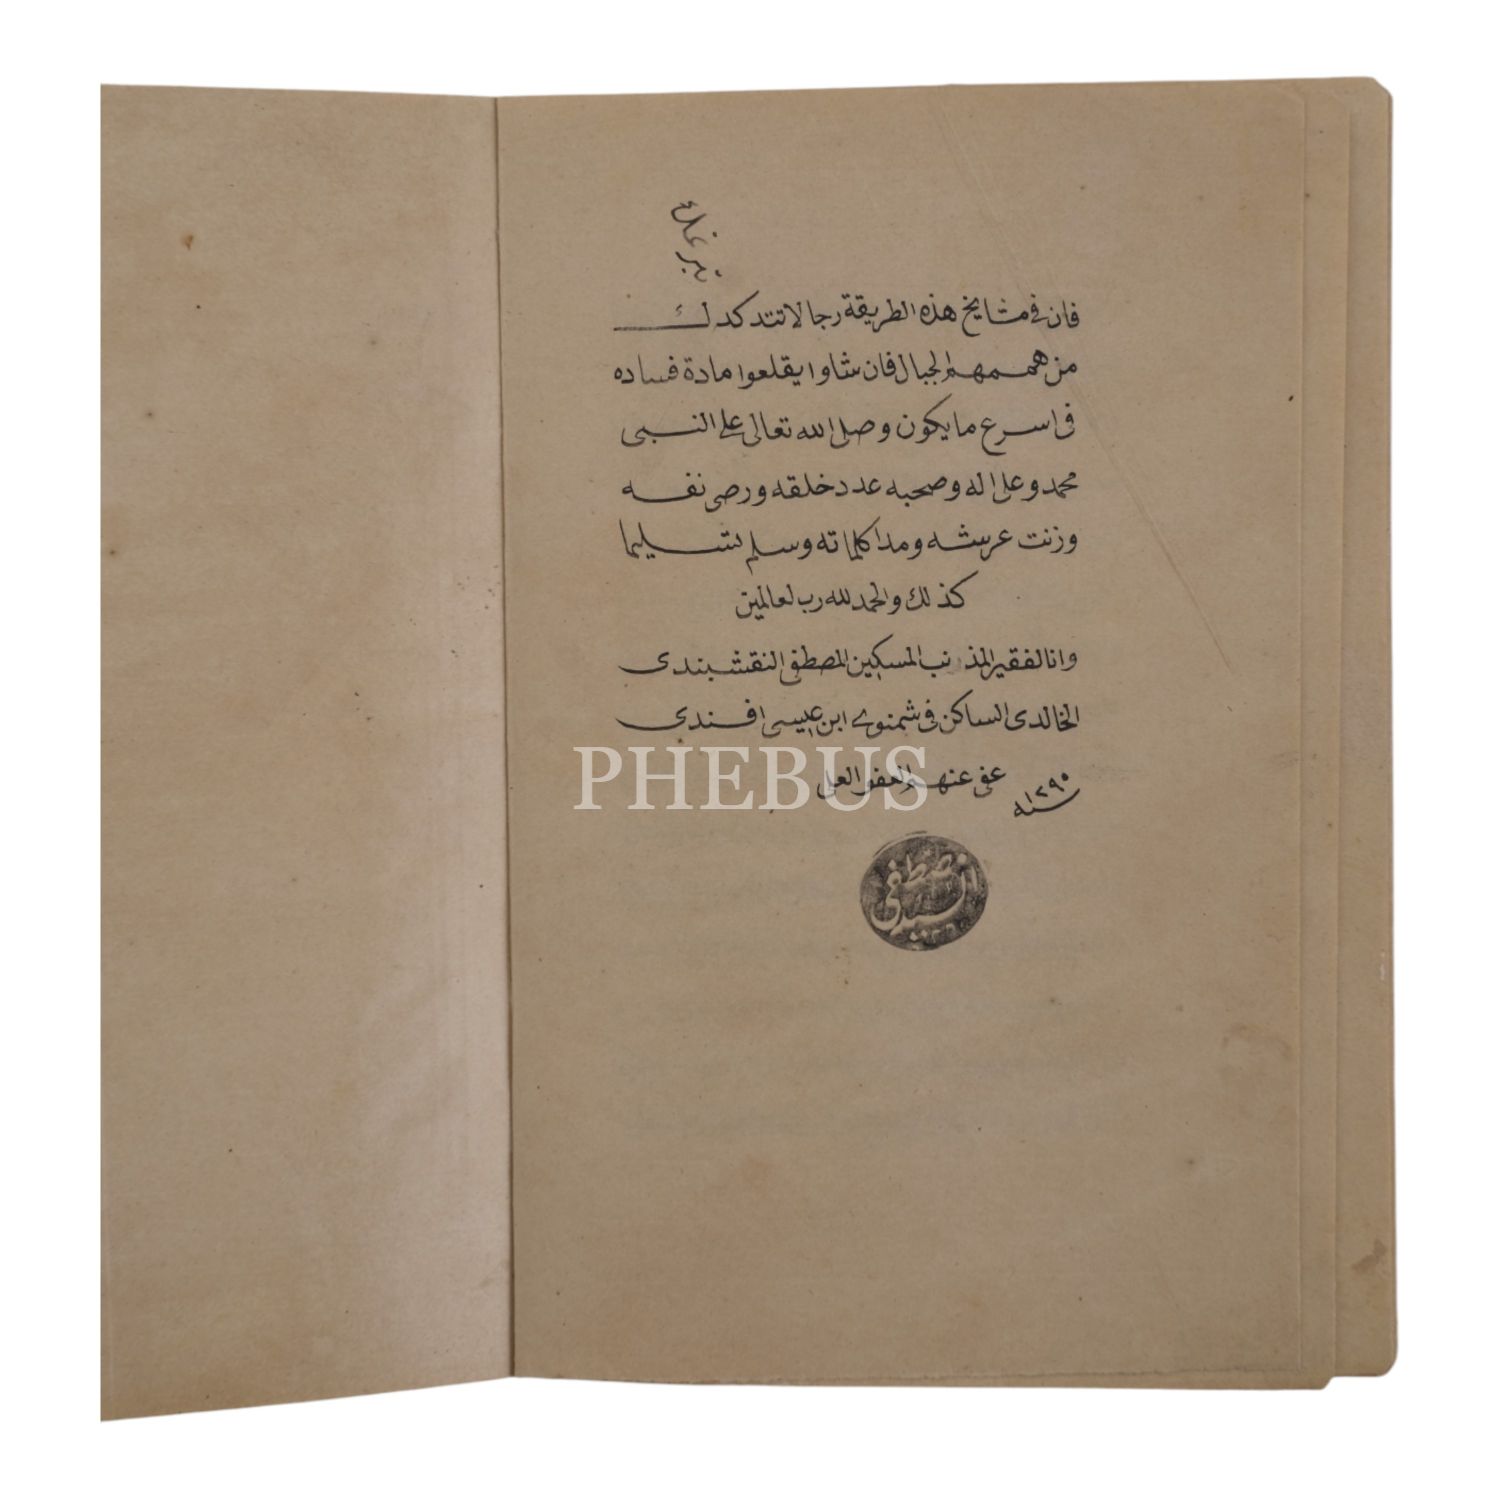 فان فى مشايخ هذه الطريقة رجالا تتدكدك
من هممهم الجبال فان شاوا يقلعوا مادة فساده
فى اسرع ما يكون وصلى الله تعالى على النبى
محمد وعلى اله وصحبه عدد خلقه ورضى نفسه
وزنت عرشه ومداكلماته وسلم تسليما
كذلك والحمد لله رب لعالمين
وانا الفقير المذنب المسكين المصطفى النقشبندى
الخالدى الساكن فى شمنوى ابن عيسى افندى
عفى عنهم العفو العلى
سنه ١٢٩٥
PHEBUS
مصطفى